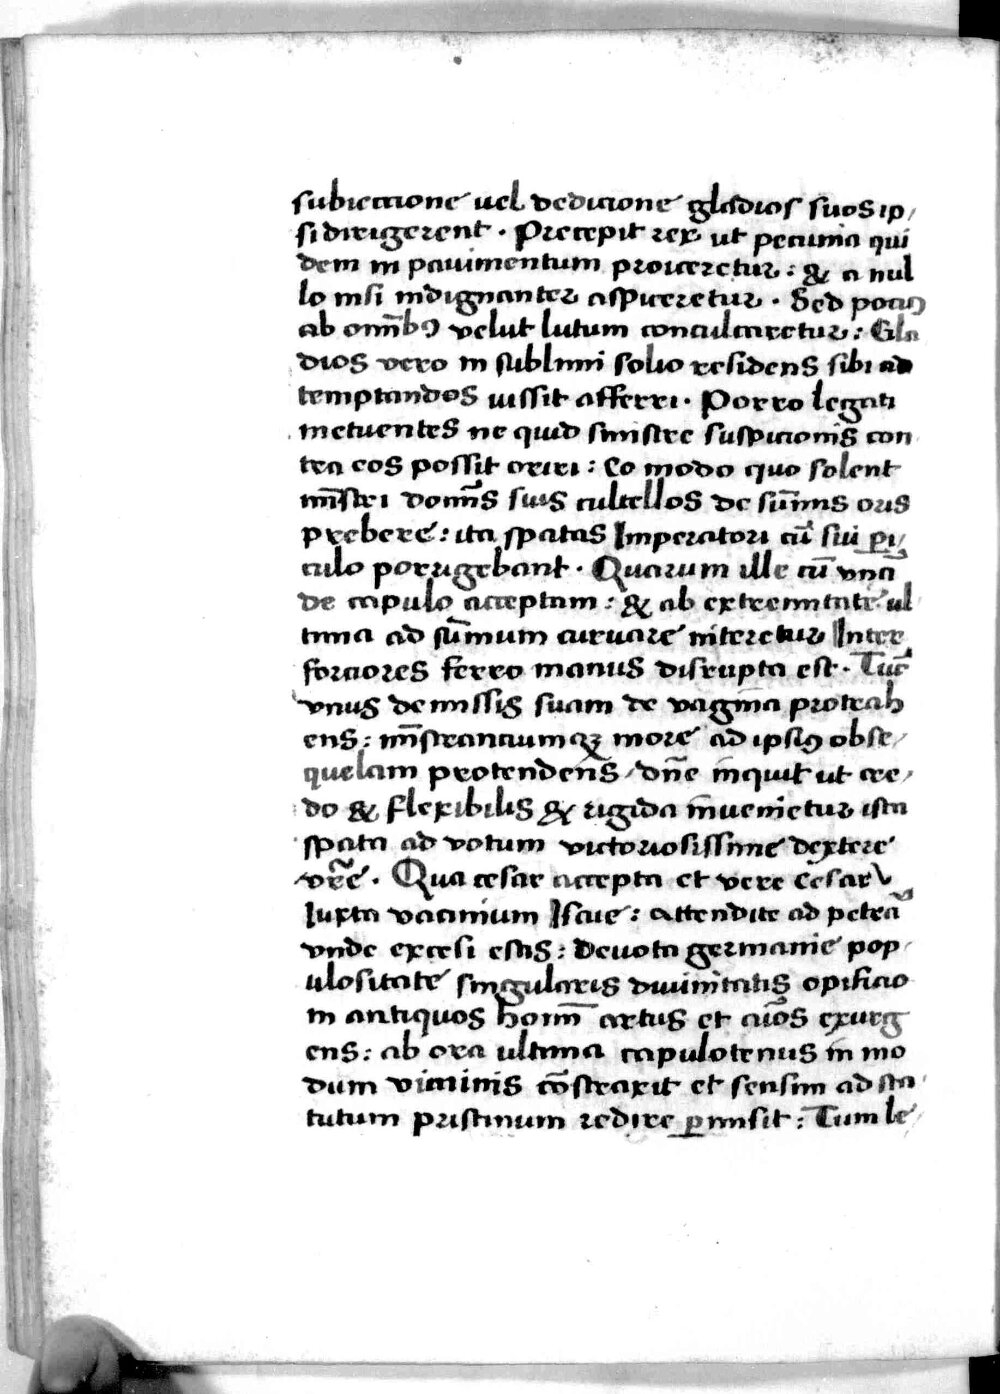 subieccione uel dedicione gladios suos ip/
si dirigerent . Precepit rex ut pecunia qui
dem in pauimentum proiceretur : & a nul
lo nisi indignanter aspiceretur . Sed pociꝰ
ab om̅ibꝰ velut lutum conculcaretur : Gla
dios vero in sublimi solio residens sibi ad
temptandos iussit afferri . Porro legati
metuentes ne quid sinistre suspicionis con
tra eos possit oriri : Eo modo quo solent
mi̅stri domi̅s suis cultellos de su̅mis oris
prebere : ita spatas Imperatori cu̅ sui ꝑi/
culo porrigebant . Quarum ille cu̅ vna̅
de capulo acceptam : & ab extremitate ul
tima ad su̅mum curuare niteretur Inter
forciores ferro manus disrupta est . Tu̅c
vnus de missis suam de vagi̅a protrah
ens : mi̅strantiumqꝫ more ad ipsiꝰ obse/
quelam protendens / dn̅e inquit ut cre/
do & flexibilis & rigida inuenietur ista
spata ad votum victoriosissime dextere
vr̅e . Qua cesar accepta et vere cesar
Iuxta vaticinium Isaie : attendite ad petra̅
vnde excesi estis : deuota germanie pop/
ulositate singularis diuinitatis opificio
in antiquos homi̅ artus et ai̅os exurg
ens : ab ora ultima capulotenus in mo
dum viminis co̅straxit et sensim ad sta/
tutum pristinum redire ꝑmisit : Tum le/